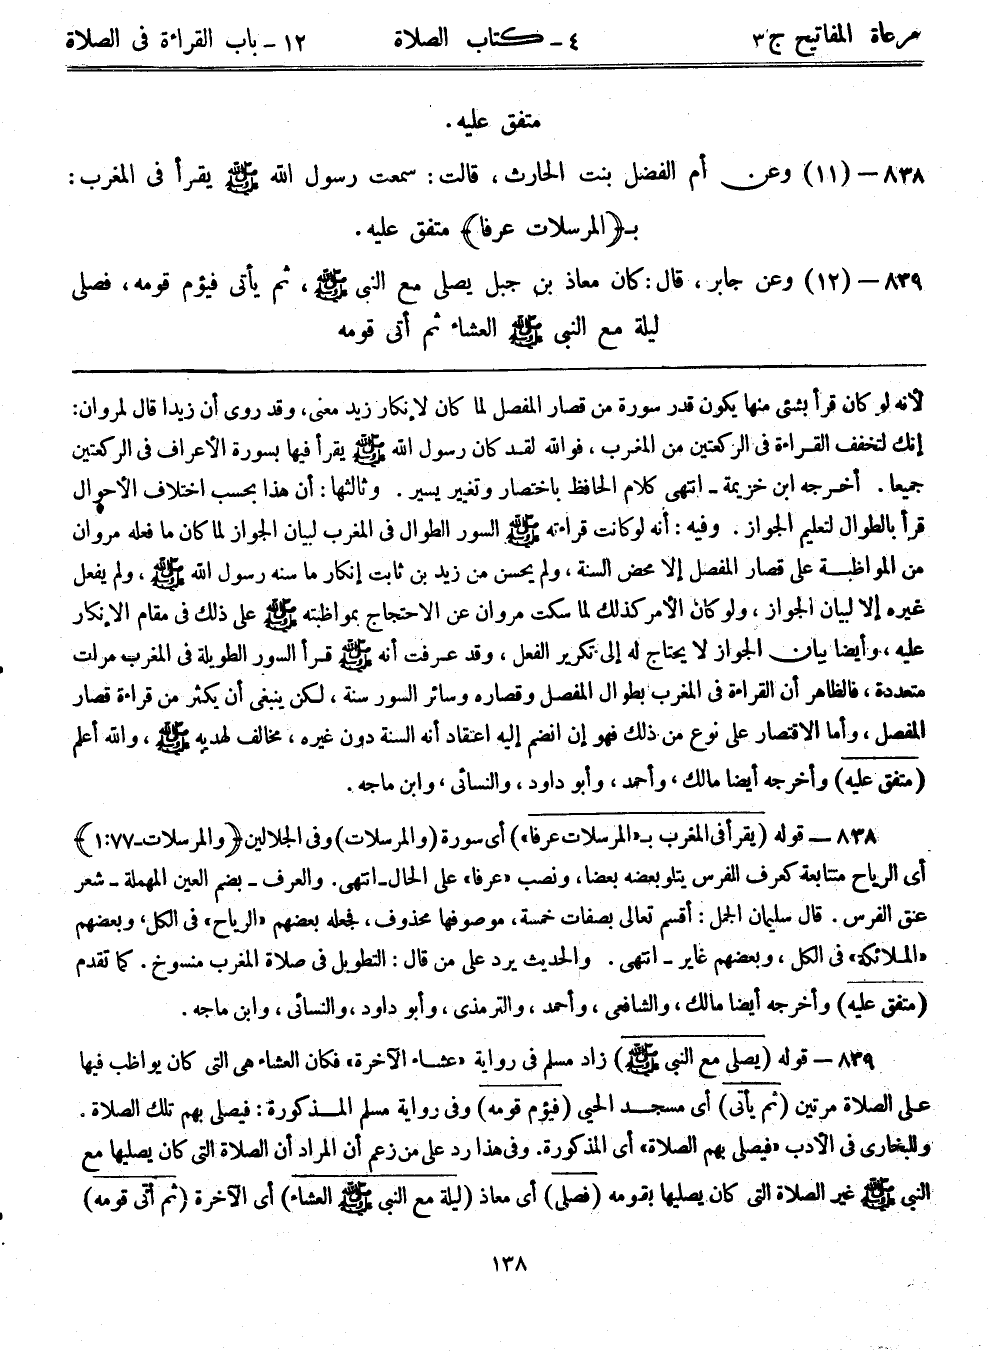 مرعاة المفاتيح ج ٣ ٤ ـ كتاب الصلاة ١٢ ـ باب القراءة فى الصلاة
متفق عليه .
٨٣٨ — (١١) وعن أم الفضل بنت الحارث ، قالت : سمعت رسول الله ﷺ يقرأ فى المغرب :
بـ﴿المرسلات عرفا﴾ متفق عليه .
٨٣٩ — (١٢) وعن جابر ، قال : كان معاذ بن جبل يصلى مع النبى ﷺ ، ثم يأتى فيؤم قومه ، فصلى
ليلة مع النبى ﷺ العشاء ثم أتى قومه
لأنه لو كان قرأ بشئى منها يكون قدر سورة من قصار المفصل لما كان لإنكار زيد معنى ، وقد روى أن زيدا قال لمروان :
إنك لتخفف القراءة فى الركعتين من المغرب ، فوالله لقد كان رسول الله ﷺ يقرأ فيها بسورة الأعراف فى الركعتين
جميعا . أخرجه ابن خزيمة ـ انتهى كلام الحافظ باختصار وتغيير يسير . وثالثها : أن هذا بحسب اختلاف الأحوال
قرأ بالطوال لتعليم الجواز . وفيه : أنه لو كانت قراءته ﷺ السور الطوال فى المغرب لبيان الجواز لما كان ما فعله مروان
من المواظبة على قصار المفصل إلا محض السنة ، ولم يحسن من زيد بن ثابت إنكار ما سنه رسول الله ﷺ ، ولم يفعل
غيره إلا لبيان الجواز ، ولو كان الأمر كذلك لما سكت مروان عن الاحتجاج بمواظبته ﷺ على ذلك فى مقام الإنكار
عليه ، وأيضا بيان الجواز لا يحتاج له إلى تكرير الفعل ، وقد عرفت أنه ﷺ قرأ السور الطويلة فى المغرب مرات
متعددة ، فالظاهر أن القراءة فى المغرب بطوال المفصل وقصاره وسائر السور سنة ، لكن ينبغى أن يكثر من قراءة قصار
المفصل ، وأما الاقتصار على نوع من ذلك فهو إن انضم إليه اعتقاد أنه السنة دون غيره ، مخالف لهديه ﷺ ، والله أعلم
(متفق عليه) وأخرجه أيضا مالك ، وأحمد ، وأبو داود ، والنسائى ، وابن ماجه .
٨٣٨ — قوله (يقرأ فى المغرب بـ«المرسلات عرفا») أى سورة (والمرسلات) وفى الجلالين ﴿والمرسلات ـ ٧٧:١﴾
أى الرياح متتابعة كعرف الفرس يتلو بعضه بعضا ، ونصب «عرفا» على الحال ـ انتهى . والعرف ـ بضم العين المهملة ـ شعر
عنق الفرس . قال سليمان الجمل : أقسم تعالى بصفات خمسة ، موصوفها محذوف ، فجعله بعضهم «الرياح» فى الكل ، وبعضهم
«الملائكة» فى الكل ، وبعضهم غاير ـ انتهى . والحديث يرد على من قال : التطويل فى صلاة المغرب منسوخ . كما تقدم
(متفق عليه) وأخرجه أيضا مالك ، والشافعى ، وأحمد ، والترمذى ، وأبو داود ، والنسائى ، وابن ماجه .
٨٣٩ — قوله (يصلى مع النبى ﷺ) زاد مسلم فى رواية «عشاء الآخرة» فكان العشاء هى التى كان يواظب فيها
على الصلاة مرتين (ثم يأتى) أى مسجد الحي (فيؤم قومه) وفى رواية مسلم المذكورة : فيصلى بهم تلك الصلاة .
وللبخارى فى الأدب «فيصلى بهم الصلاة» أى المذكورة . وفى هذا رد على من زعم أن المراد أن الصلاة التى كان يصليها مع
النبى ﷺ غير الصلاة التى كان يصليها بقومه (فصلى) أى معاذ (ليلة مع النبى ﷺ العشاء) أى الآخرة (ثم أتى قومه)
١٣٨